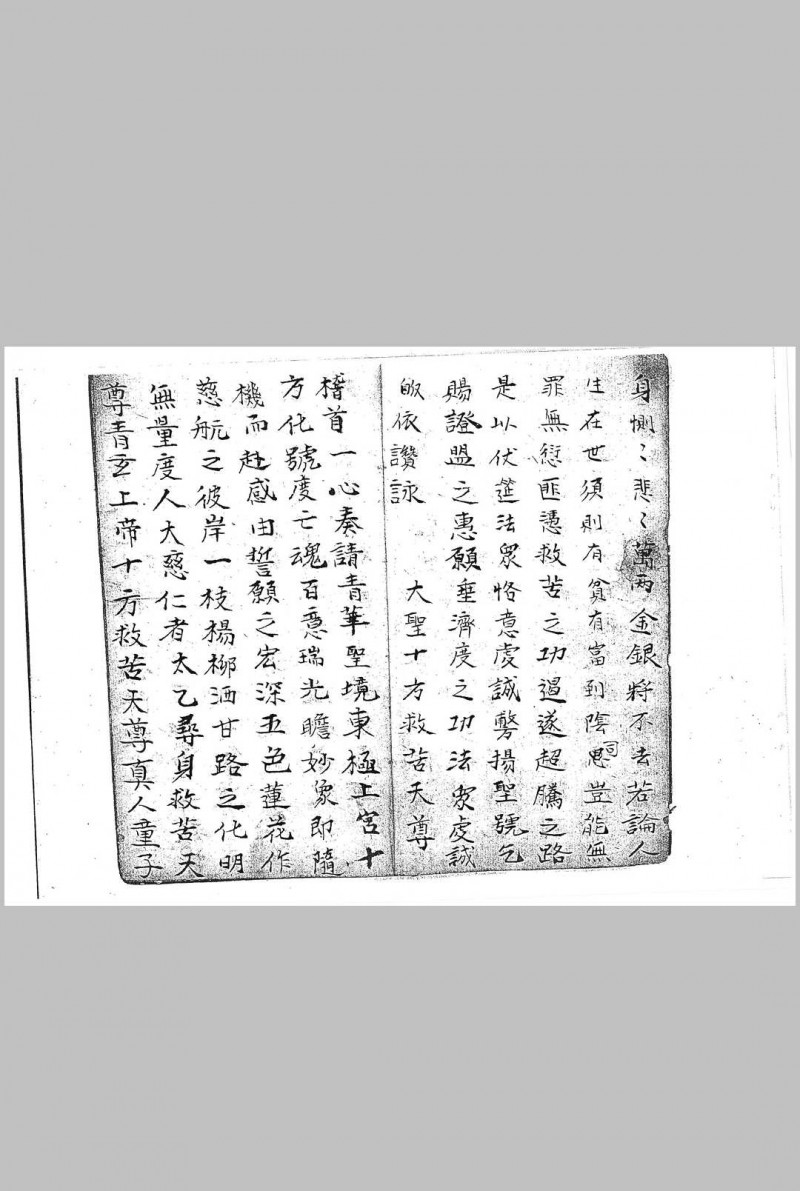 身惻〻悲〻萬兩金銀將不去若論人
生在世須則有貧有富到陰司豈能無
罪無愆匪憑救苦之功曷遂超騰之路
是以伏筵法眾恪意虔誠臋揚聖號乞
賜證盟之惠願垂濟度之功法眾虔誠
皈依讚詠 大聖十方救苦天尊
稽首一心奏請青華聖境東極上宮十
方化號度亡魂百億瑞光瞻妙象即隨
機而赴感由誓願之宏深五色蓮花作
慈航之彼岸一枝楊柳洒甘路之化明
無量度人大慈仁者太乙尋身救苦天
尊青玄上帝十方救苦天尊真人童子